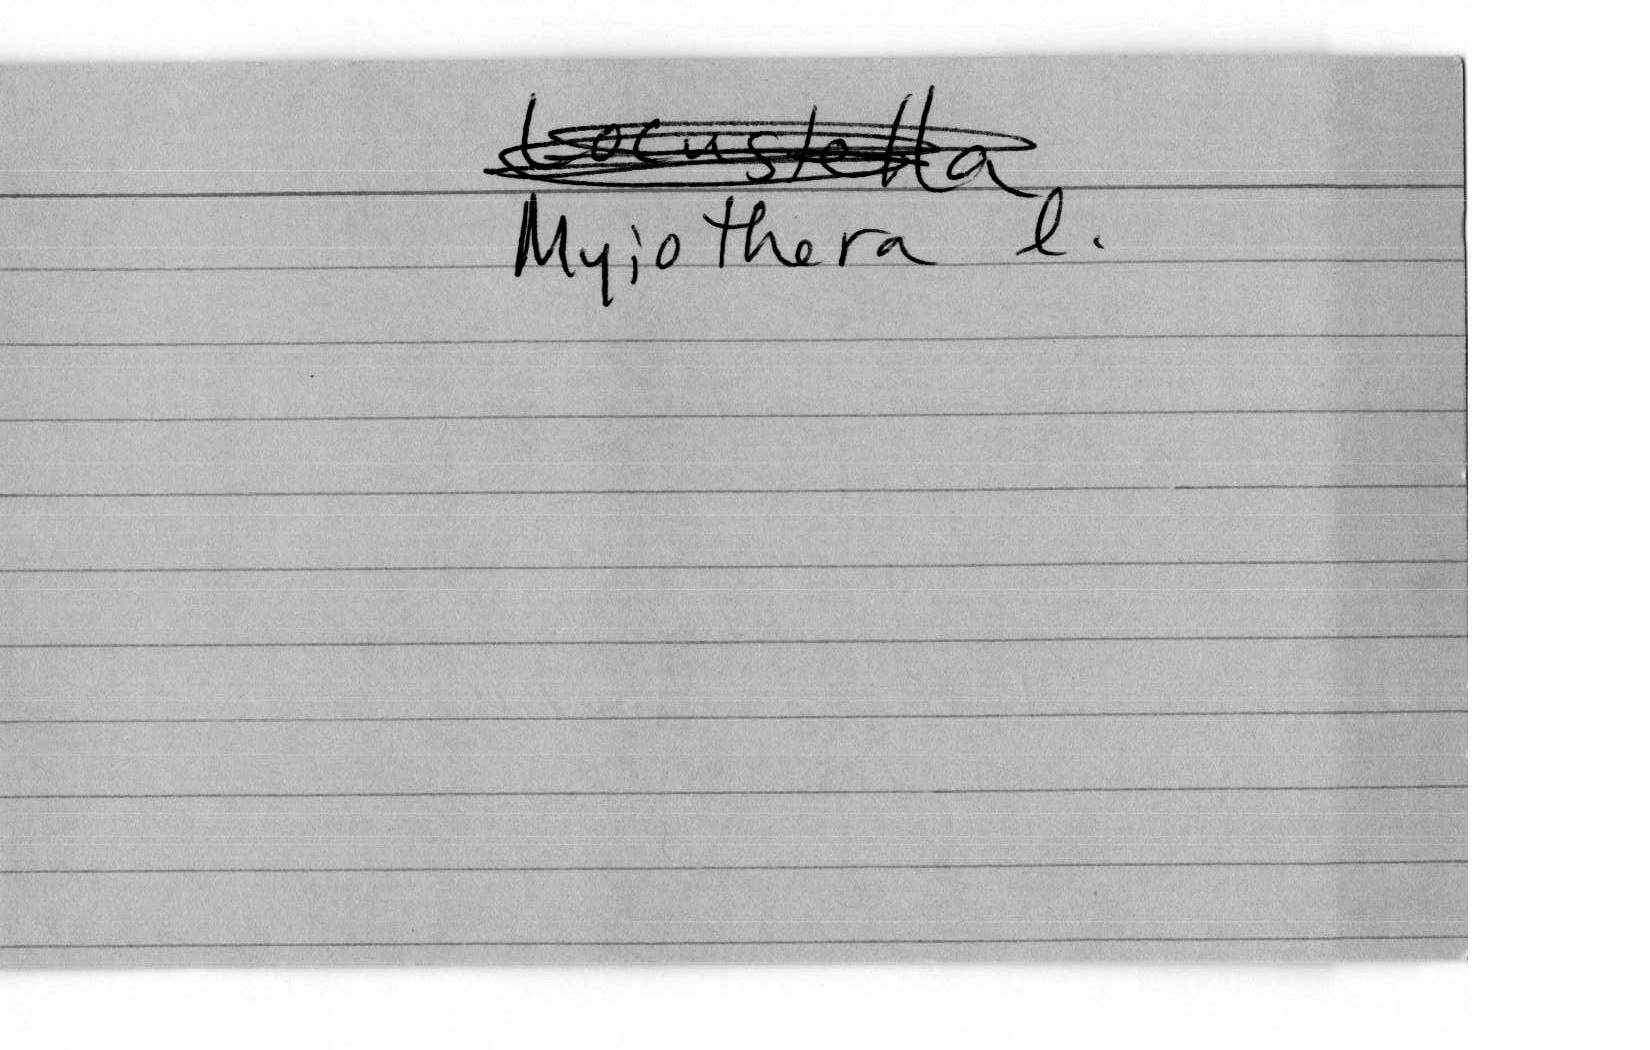 Locustella
Myiothera l.